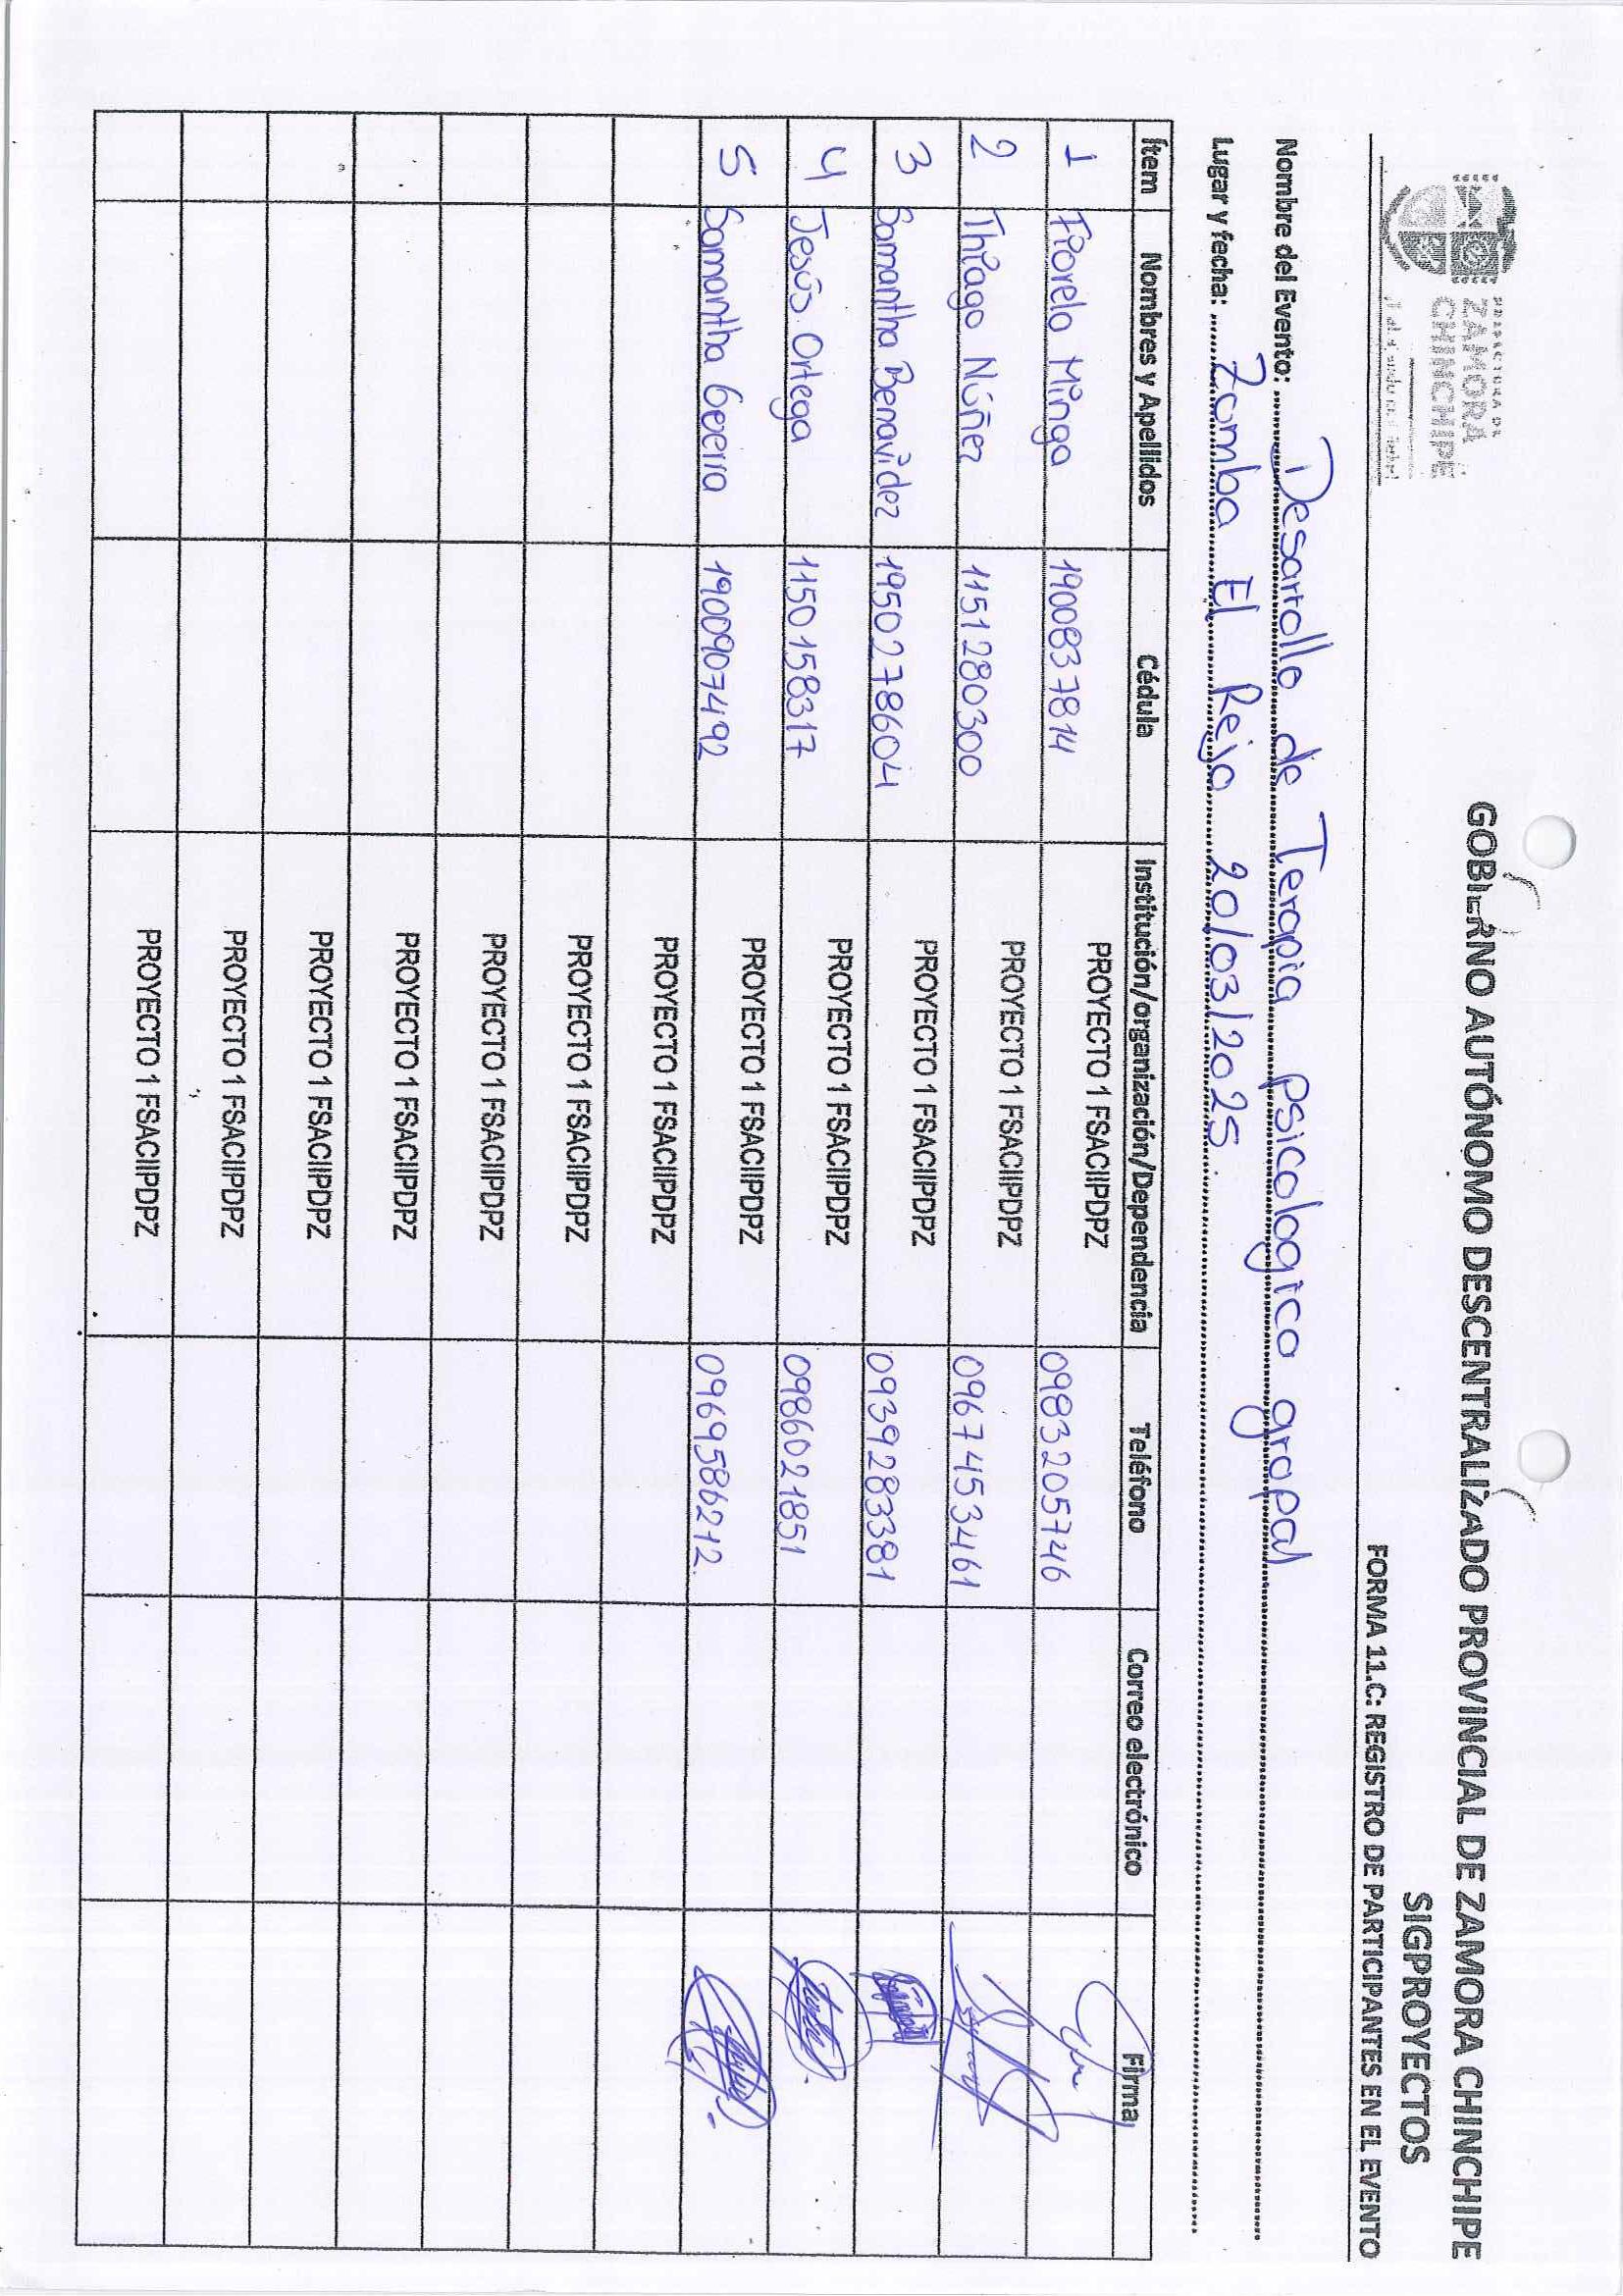 PREFECTURA DE
ZAMORA
CHINCHIPE
GOBIERNO AUTÓNOMO DESCENTRALIZADO PROVINCIAL DE ZAMORA CHINCHIPE
SIGPROYECTOS
FORMA 11.C: REGISTRO DE PARTICIPANTES EN EL EVENTO
Nombre del Evento: Desarrollo de Terapia psicologico grupal
Lugar y fecha: Zumba El Rejo 20/03/2025
Ítem Nombres y Apellidos Cédula Institución/organización/Dependencia Teléfono Correo electrónico Firma
1 Fiorela Minga 1900837814 PROYECTO 1 FSACIIPDPZ 0983205746
2 Thiago Núñez 1151280300 PROYECTO 1 FSACIIPDPZ 0967453461
3 Samantha Benavidez 1950278604 PROYECTO 1 FSACIIPDPZ 0939283381
4 Jesús Ortega 1150158317 PROYECTO 1 FSACIIPDPZ 0986021851
5 Samantha Guerra 1900907492 PROYECTO 1 FSACIIPDPZ 0969586212
PROYECTO 1 FSACIIPDPZ
PROYECTO 1 FSACIIPDPZ
PROYECTO 1 FSACIIPDPZ
PROYECTO 1 FSACIIPDPZ
PROYECTO 1 FSACIIPDPZ
PROYECTO 1 FSACIIPDPZ
PROYECTO 1 FSACIIPDPZ